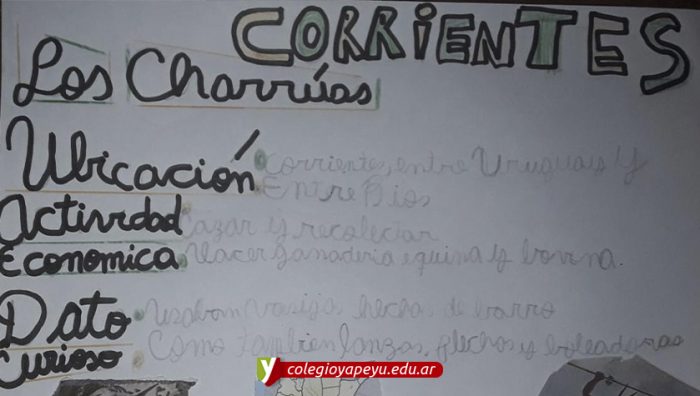 CORRIENTES
Los Charrúas
Ubicación
Corrientes, entre Uruguay y
Entre Ríos
Actividad
Economica
Cazar y recolectar
Hacer ganaderia equina y bovina.
Dato
Curioso
Usaban vasijas hechas de barro
Como tambien lanzas, flechas y boleadoras
y colegioyapeyu.edu.ar